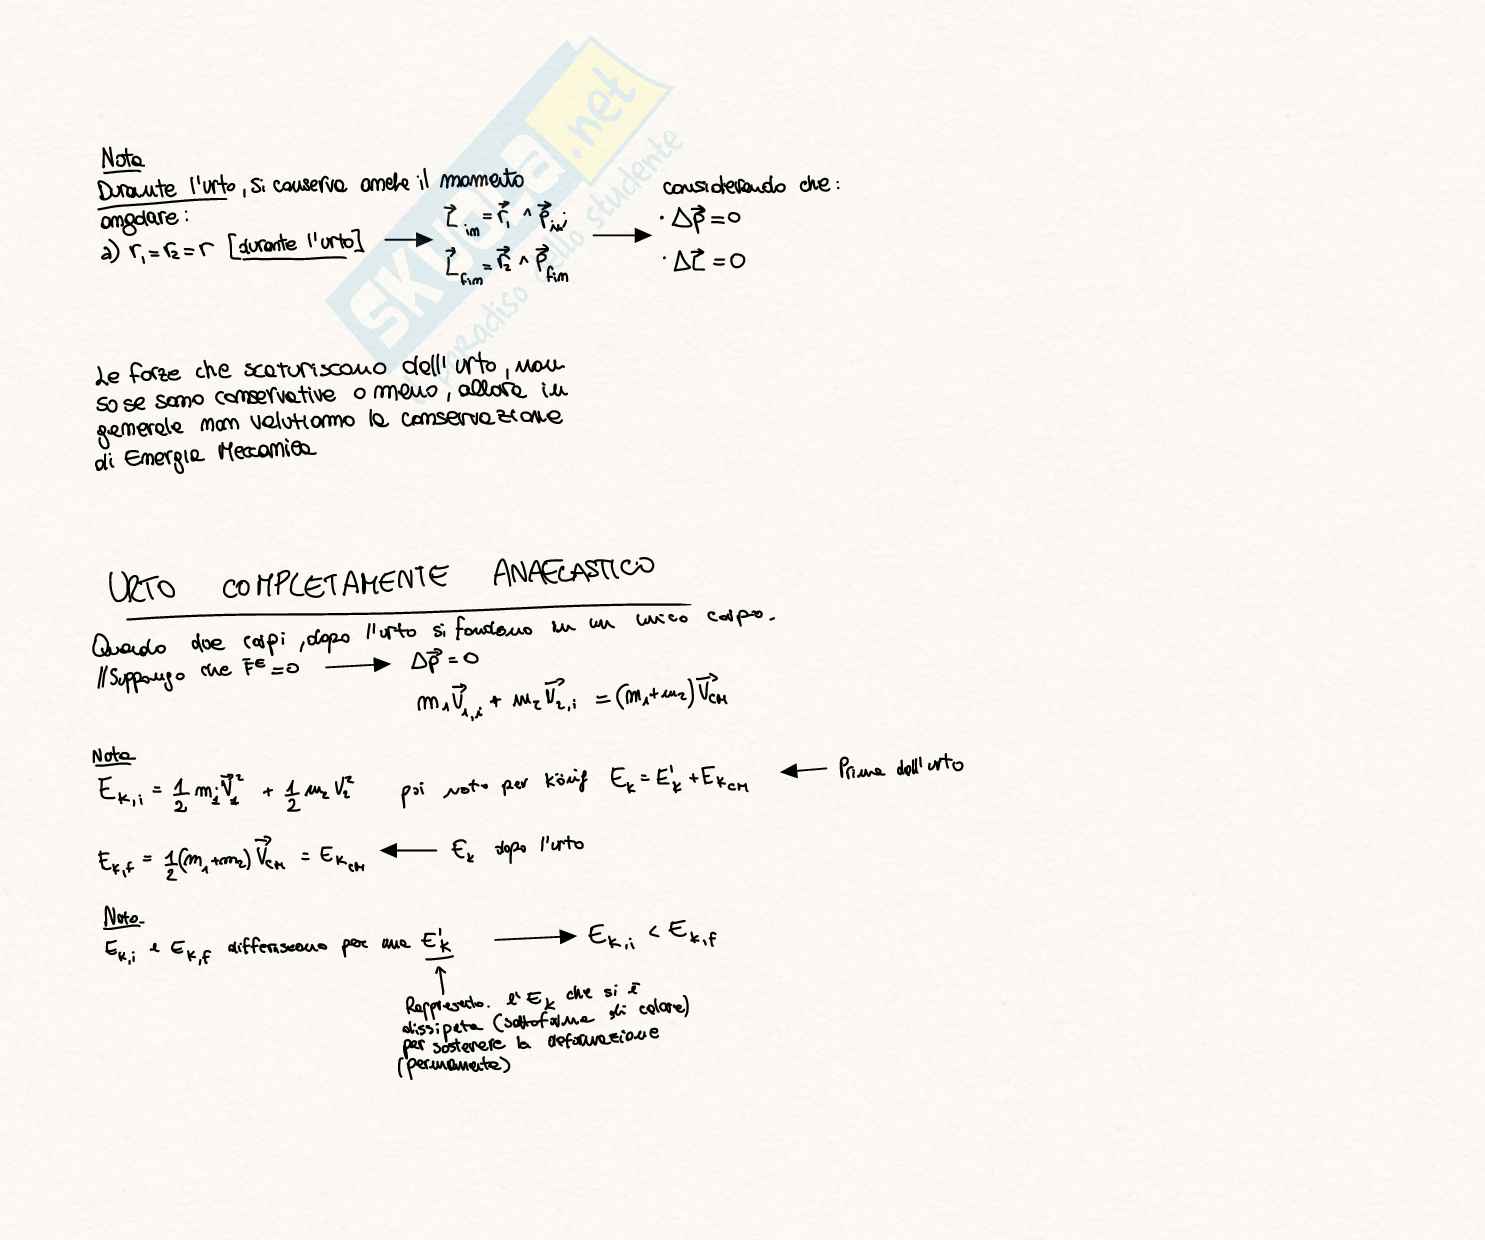 Nota
Durante l'urto, si conserva anche il momento
angolare:
a) r₁=r₂=r [durante l'urto]
L⃗ in = r⃗₁ ∧ p⃗ in
L⃗ fin = r⃗₂ ∧ p⃗ fin
considerando che:
· Δp⃗=0
· ΔL⃗=0
SKUOLA.net
il paradiso dello studente
Le forze che scaturiscono dall'urto, non
so se sono conservative o meno, allora in
generale non valutiamo la conservazione
di Energia Meccanica
URTO COMPLETAMENTE ANAELASTICO
Quando due corpi, dopo l'urto si fondono in un unico corpo.
//Suppongo che F⃗ᴱ=0 → Δp⃗=0
m₁V⃗₁,i + m₂V⃗₂,i = (m₁+m₂)V⃗CM
Nota
E K,i = 1/2 m₁V⃗₁² + 1/2 m₂V₂² poi noto per könig E K = E'K + E K CM ← Prima dell'urto
E K,f = 1/2(m₁+m₂)V⃗CM = E K CM ← E K dopo l'urto
Nota
E K,i e E K,f differiscono per una E'K → E K,i < E K,f
Rappresenta l'E K che si è
dissipata (sottoforma di calore)
per sostenere la deformazione
(permanente)